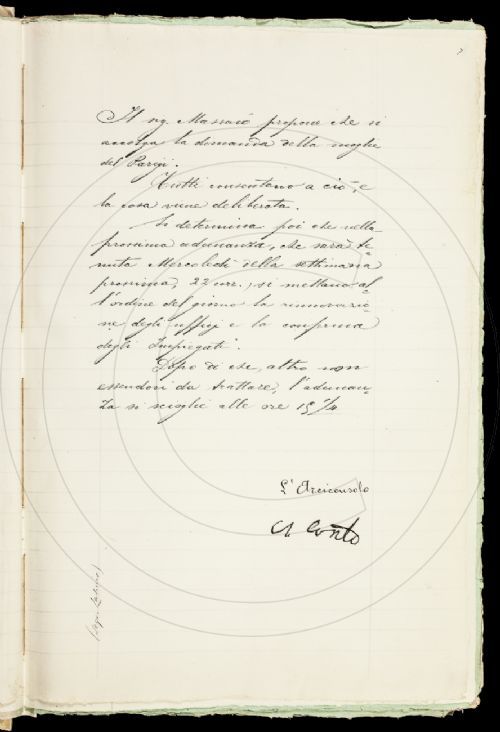 Il sig. Massaio propone che si
accolga la domanda della moglie
del Parigi.
Tutti consentono a ciò, e
la cosa viene deliberata.
Si determina poi che nella
prossima adunanza, che sarà te-
nuta Mercoledì della settimana
prossima, 22 corr., si mettano al-
l'ordine del giorno la rinnovazio-
ne degli uffizi e la conferma
degli Impiegati.
Dopo di che, altro non
essendovi da trattare, l'adunan-
za si scioglie alle ore 15 1/4
L'Arciconsolo
A Conti